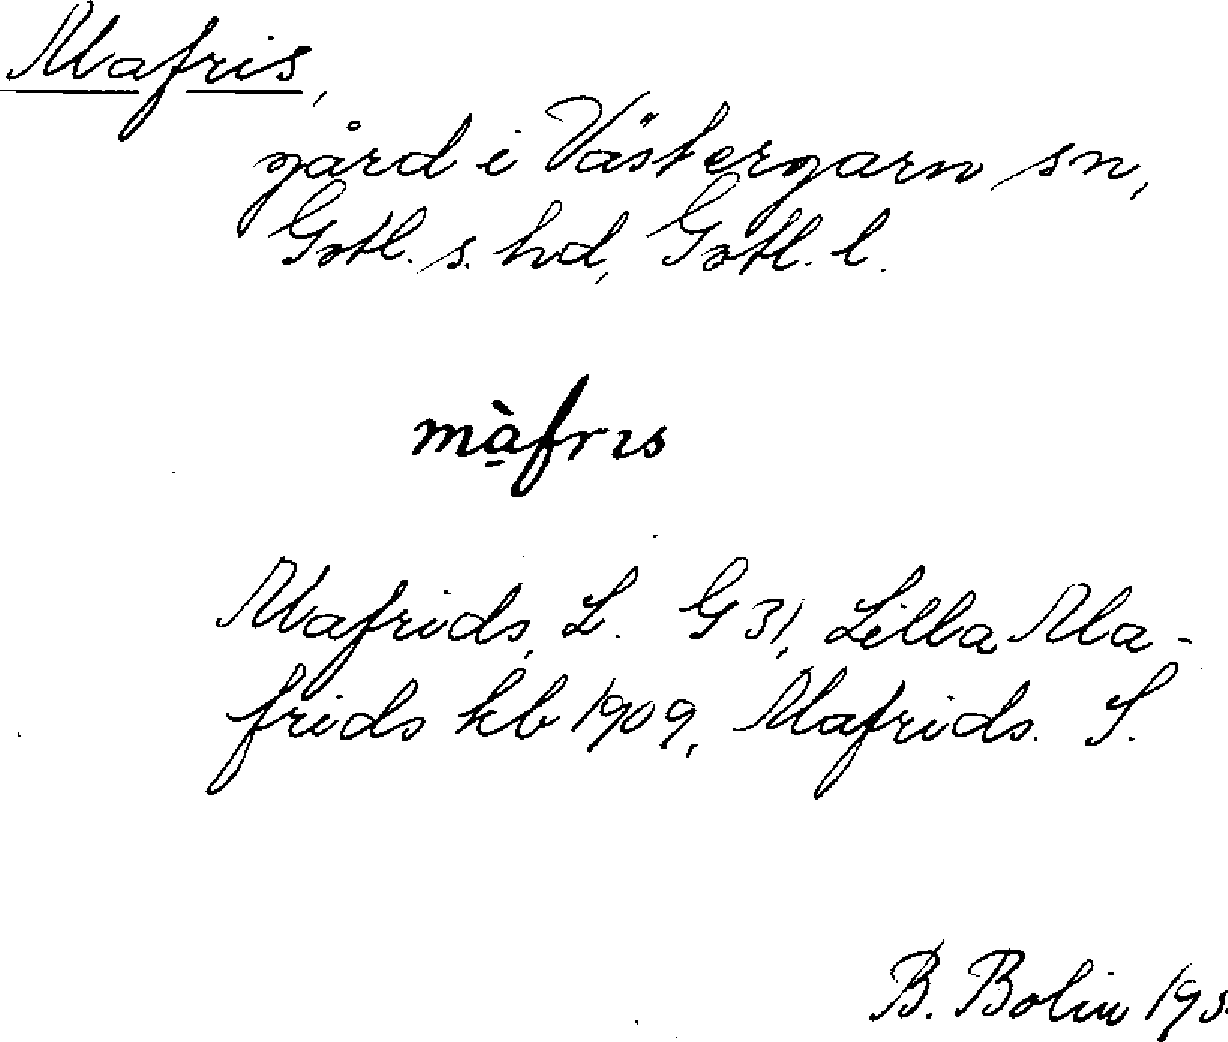 Mafris,
gård i Västergarn sn,
Gotl. s. hd, Gotl. l.
mà̱fris
Mafrids, L. G 31, Lilla Ma-
frids kb 1909, Mafrids. S.
B. Bolin 195